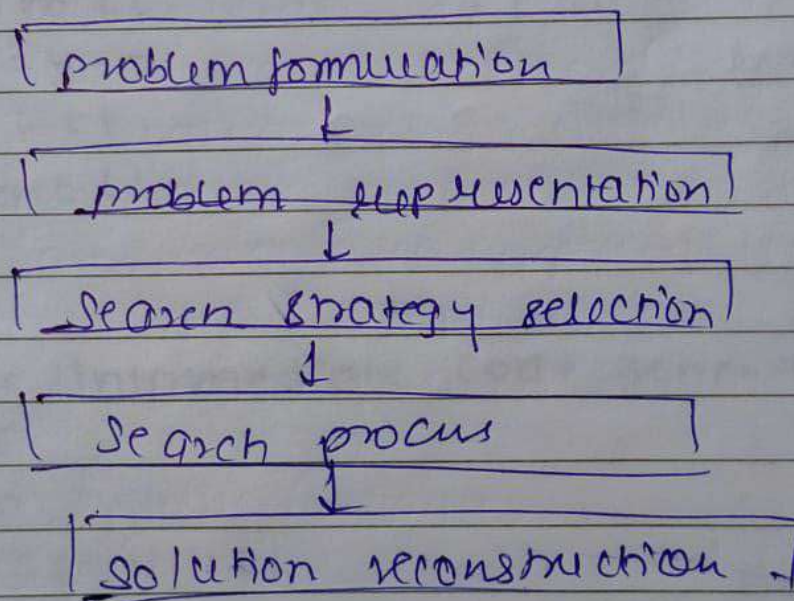 problem formulation
problem representation
search strategy selection
search process
solution reconstruction.